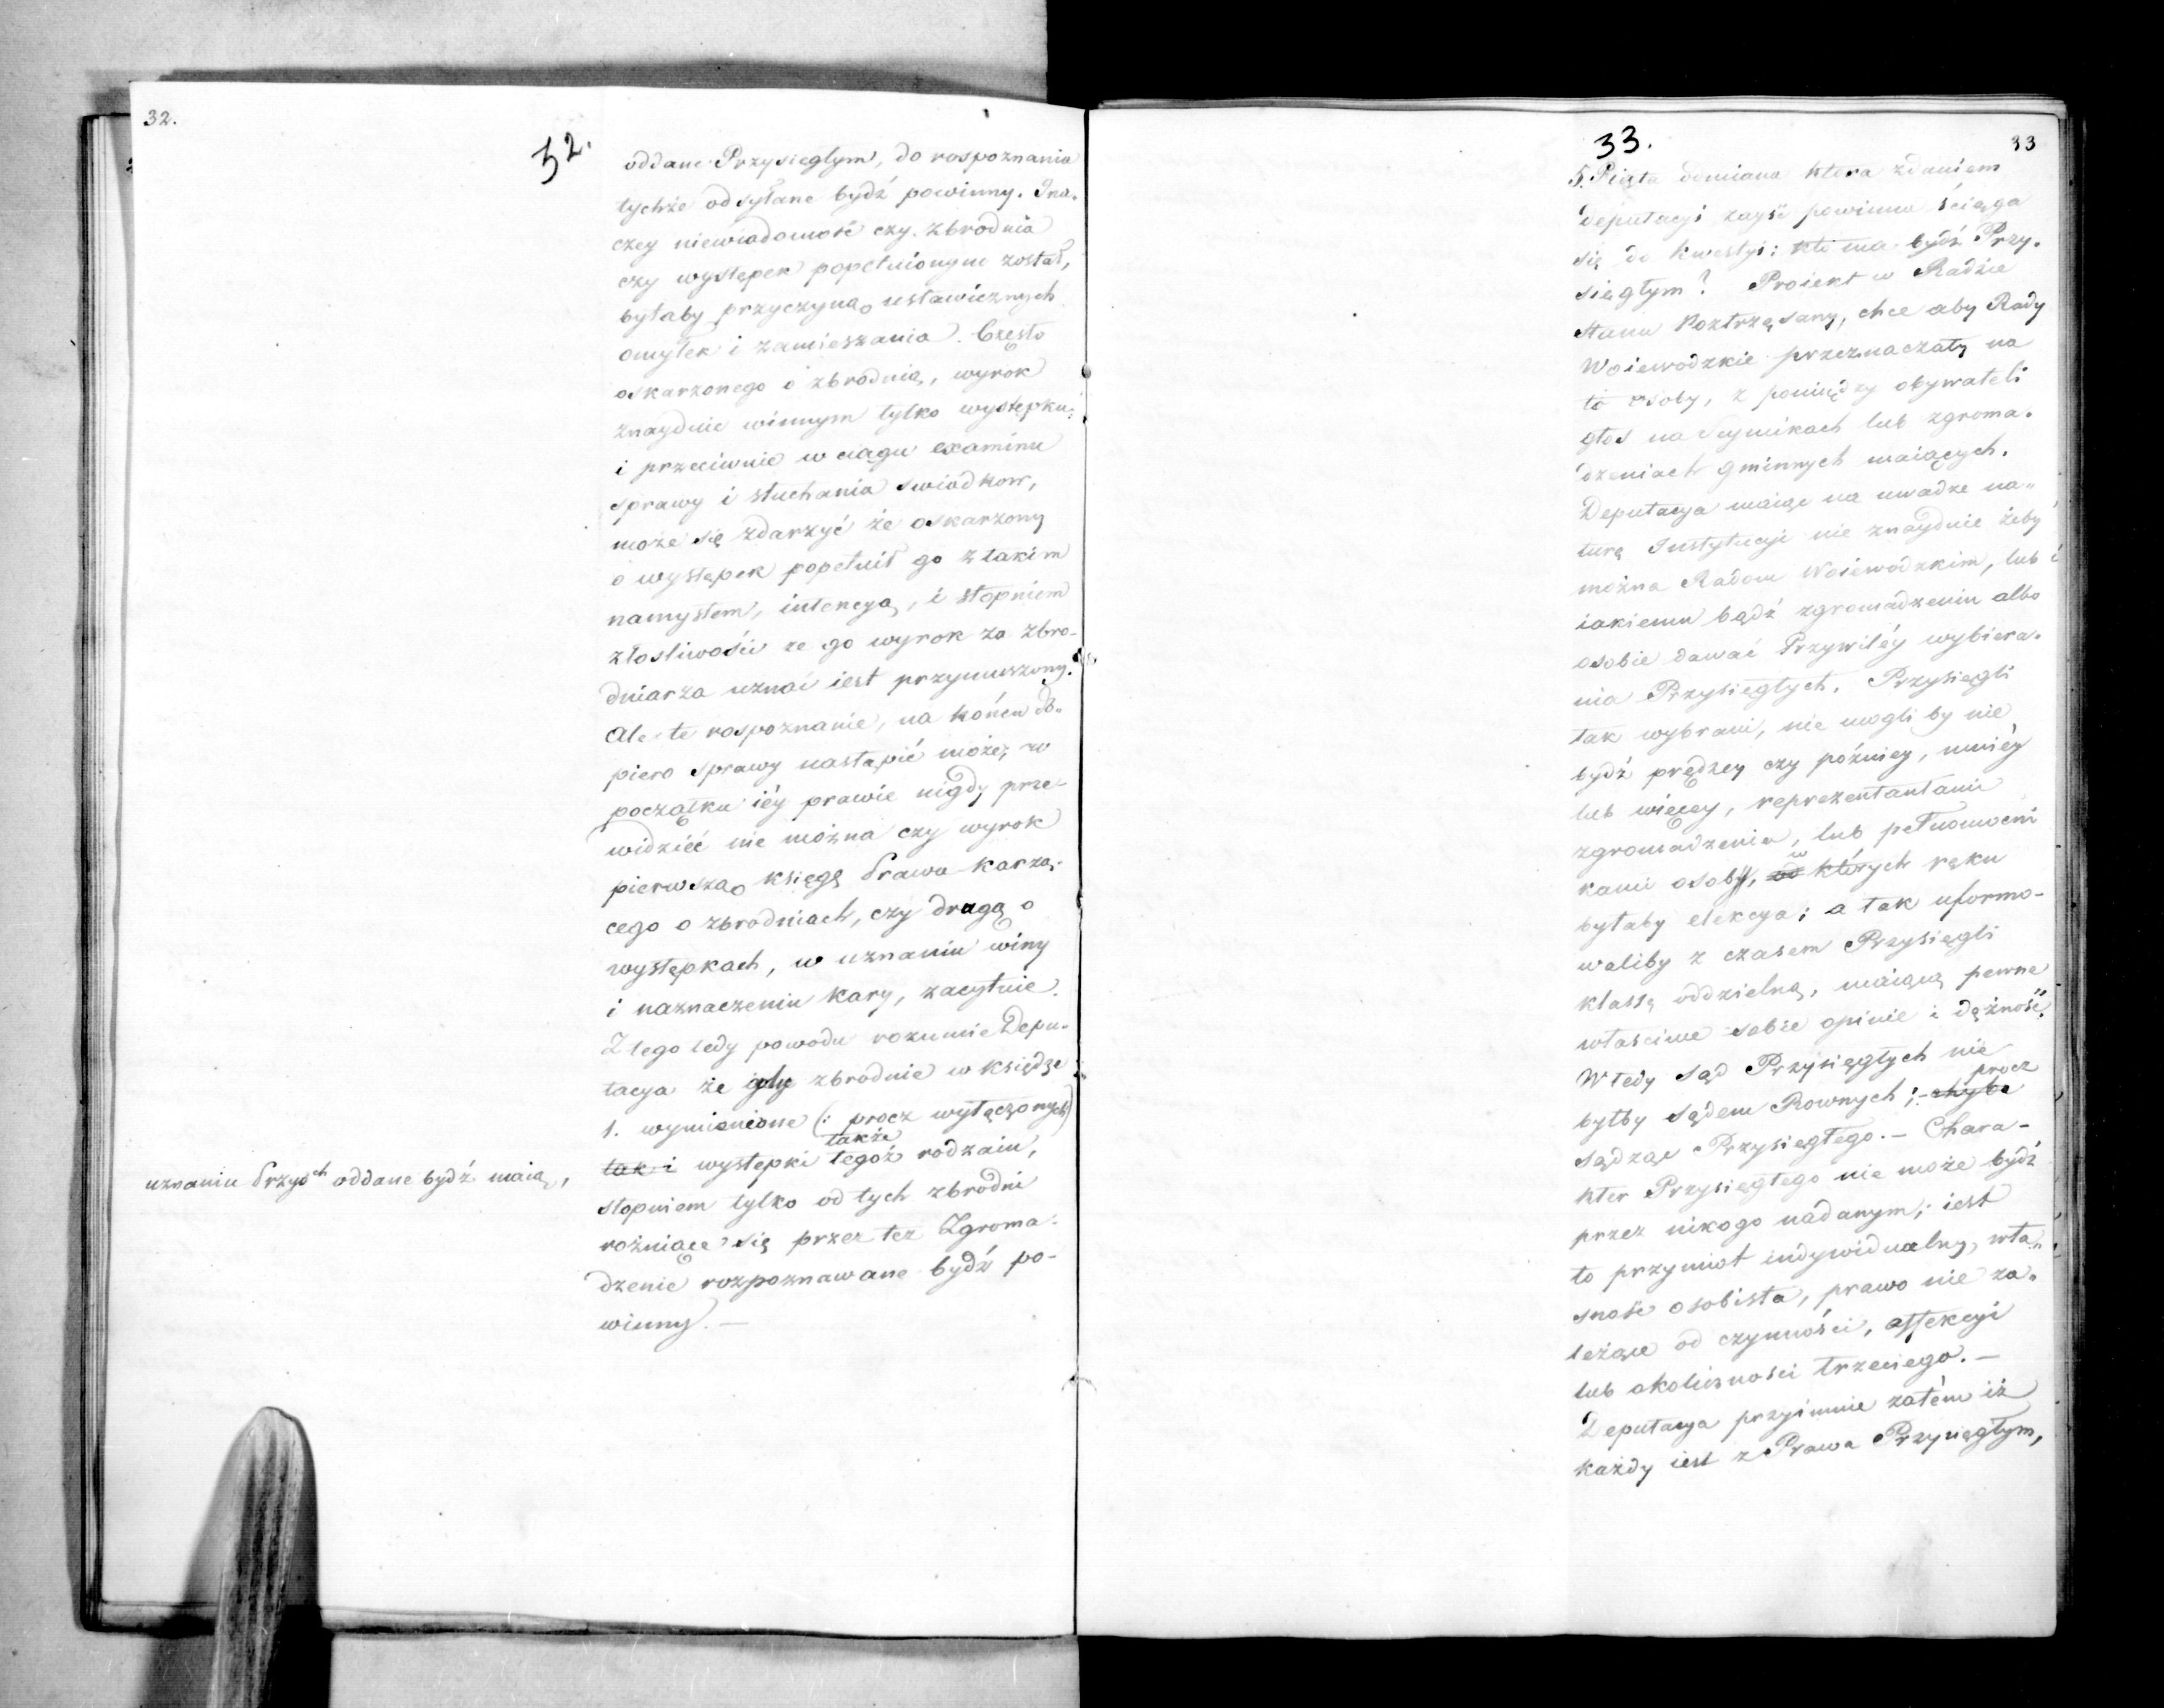 32.
32.
oddane Przysięgłym, do rospoznania
tychże odsyłane bydź powinny. Ina-
czey niewiadomość czy zbrodnia
czy występek popełnionym został,
byłaby przyczyną ustawicznych
omyłek i zamieszania. Często
oskarzonego o zbrodnią, wyrok
znaydnie winnym tylko występku;
i przeciwnie w ciągu examinu
sprawy i słuchania swiadkow,
może się zdarzyć że oskarzony
o występek popełnił go z takim
namysłem, intencyą, i stopniem
złosliwości ze go wyrok za zbro-
dniarza uznać iest przymuszony.
Ale te rospoznanie, na końcu do-
piero sprawy nastąpić może; w
początku iéy prawie nigdy prze-
widzieć nie można czy wyrok
pierwszą księgę Prawa karzą-
cego o zbrodniach, czy drugą o
występkach, w uznaniu winy
i naznaczeniu kary, zacytuie.
Z tego tedy powodu rozumie Depu-
tacya że gdy zbrodnie w księdze
1. wymienione (: procz wyłączonych)
uznaniu Przysch oddane bydź maią,
także
tak i występki tegoż rodzaiu,
stopniem tylko od tych zbrodni
rożniące się przez tez Zgroma-
dzenie rozpoznawane bydź po-
winny. —
33.
33
5. Piąta odmiana ktora zdaniem
Deputacyi zayść powinna ściąga
się do kwestyi: kto ma bydź Przy-
sięgłym? Proiekt w Radzie
Stanu Roztrząsany, chce aby Rady
Woiewodzkie przeznaczały na
to osoby, z pomiędzy obywateli
głos na Seymikach lub zgroma-
dzeniach gminnych maiących.
Deputacya maiąc na uwadze na-
turę Instytucyi nie znayduie żeby
można Radom Woiewódzkim, lub
iakiemu bądź zgromadzeniu albo
osobie dawać Przywiléy wybiera-
nia Przysięgłych. Przysięgli
tak wybrani, nie mogli by nie
bydź prędzey czy późniey, mniéy
lub więcey, reprezentantami
zgromadzenia, lub pełnomocni
w
kami osoby, od których ręku
byłaby elekcya; a tak uformo-
waliby z czasem Przysięgli
klassę oddzielną, maiącą pewne
własciwe sobie opinie i dążność.
Wtedy Sąd Przysięgłych nie
procz
byłby sądem Rownych; chyba
sądząc Przysięgłego. — Chara-
kter Przysięgłego nie może bydź
przez nikogo nadanym; iest
to przymiot indywidualny, wła-
sność osobista, prawo nie za-
leżące od czynności, affekcyi
lub okoliczności trzeciego. —
Deputacya przyimuie zatém iż
każdy iest z Prawa Przysięgłym,